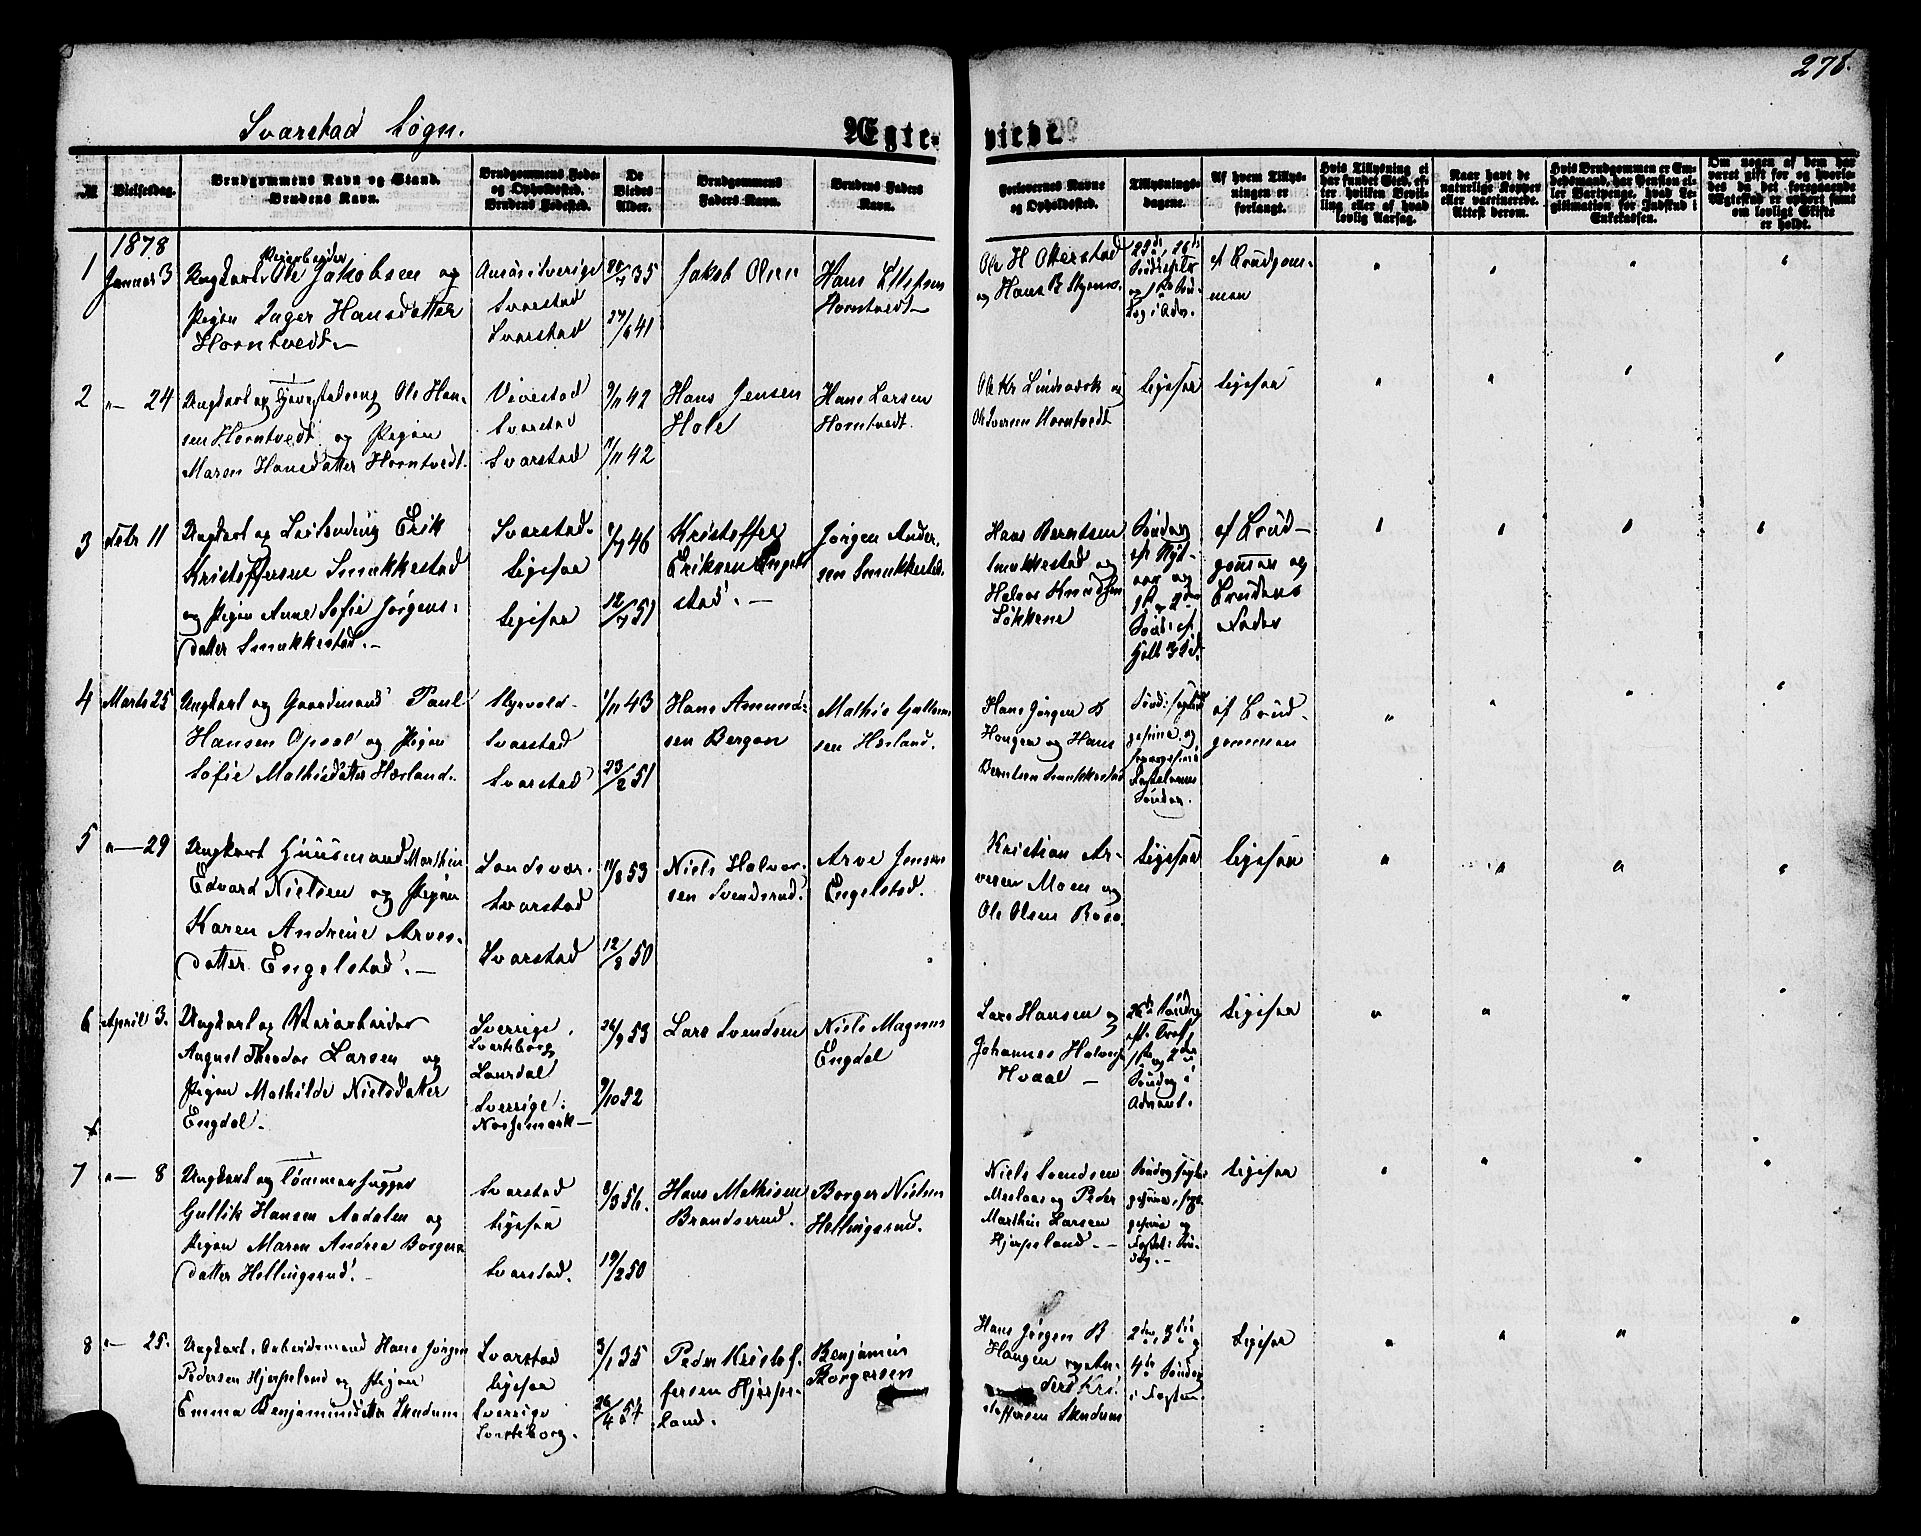 278.
Svarstad Sogn.
Ægte-
viede
№
Vielsesdag.
Brudgommens Navn og Stand.
Brudens Navn.
Brudgommens Føde-
og Opholdssted.
Brudens Fødested.
De
Viedes
Alder.
Brudgommens
Faders Navn.
Brudens Faders
Navn.
Forlovernes Navne
og Opholdssted.
Tillysnings-
dagene.
Af hvem Tillys-
ningen er
forlangt.
Hvis Tillysning ei
har fundet Sted, ef-
ter hvilken Bevil-
ling eller af hvad
lovlig Aarsag.
Naar havt de
naturlige Kopper
eller vaccinerede.
Attest derom.
Hvis Brudgommen er Em-
bedsmand, har Pension el-
ler Vartpenge, hvad Le-
gitimation for Indskud i
Enkekassen.
Om nogen af dem har
været gift før og hvorle-
des da det foregaaende
Ægteskab er ophørt samt
om lovligt Skifte
er holdt.
1878
1 Januar 3
Ungkarl Ole Jakobsen og
Pigen Inger Hansdatter
Horntvedt.
Svarstad
Svarstad
35
27/6 41
Jakob Olsen
Hans Ellefsen
Horntvedt
Ole H Otterstad
og Hans B
af Brudgom-
men
2 "— 24
Ungkarl og Ole Han-
sen Horntvedt og Pigen
Maren Hansdatter Horntvedt.
Vivestad
Svarstad
Svarstad
9/11 42
9/11 42
Hans Jensen
Hole
Hans Larsen
Horntvedt.
Ole Kr Lindsverk og
Ole Iversen Horntvedt
ligesaa
ligesaa
3 Febr 11
Ungkarl og Erik
Kristoffersen Smukkestad
og Pigen Anne Sofie Jørgens-
datter Smukkestad.
Svarstad.
ligesaa
ligesaa
46
12/7 51
Kristoffer
Eriksen Engel-
stad.
Jørgen Ander-
sen Smukkestad.
Hans Berntsen
Smukkestad og
Halvor Knudsen
Løkkene
Søndag
ef. Nyt-
aar og
1ste og 2den
Sønd. ef.
Hell 3 Kd.
af Brud-
gommen og
Brudens
Fader
4 Marts 25
Ungkarl og Gaardmand Paul
Hansen Opsal og Pigen
Sofie Mathisdatter Hærland.
Styrvold
Svarstad
Svarstad
1/11 43
23/2 51
Hans Amund-
sen Bergan
Mathis
sen Hærland.
Hans Jørgen B
Haugen og Hans
Berntsen Smukkestad
gesima og
sexagesima
Fastelavns
Søndag.
af Brud-
gommen
5 "— 29
Ungkarl Huusmand Marthin
Edvard Nielsen og Pigen
Karen Andrine Arves-
datter Engelstad.
Sandsvær.
Svarstad
Svarstad
11/8 53
12/8 50
Niels Halvor-
sen Svendsrud.
Arve Jensen
Engelstad.
Kristian Ar-
vesen Moen og
Ole Olsen
ligesaa
ligesaa
6 April 3.
Ungkarl og
August Theodor Larsen og
Pigen Mathilde Nielsdatter
Engdal.
Sverrige.
Svarteborg
Laurdal
Sverrige.
Nossemark
26/9 53
9/10 52
Lars Svendsen
Niels Magnus
Engdal
Lars Hansen og
Johannes Halvors.
Hvaal
26de Søndag
eft. Tref.
1ste og 2den
Søndag i
Advent.
ligesaa
7 "— 8
Ungkarl og Tømmerhugger
Gullik Hansen Aadalen og
Pigen Maren Andrea Borgers-
datter Hellingsrud.
Svarstad
ligesaa
Svarstad.
8/3 56.
19/2 50
Hans Mathisen
Brandsrud.
Borger Nielsen
Hellingsrud.
Niels Svendsen
og Peder
Marthin Larsen
Hjerpeland.
ligesaa
8 "— 25.
Ungkarl. Arbeidsmand Hans Jørgen
Pedersen Hjerpeland og Pigen
Emma Benjaminsdatter
Svarstad
ligesaa
Sverrige
Svarteborg.
3/1 35
26/4 57
Peder Kristof-
fersen Hjerpe-
land.
Benjamin
Borgersen
Hans Jørgen B
Haugen og An-
ders Kri-
stoffersen
2den, 3die og
4de Søndag
i Fasten
ligesaa